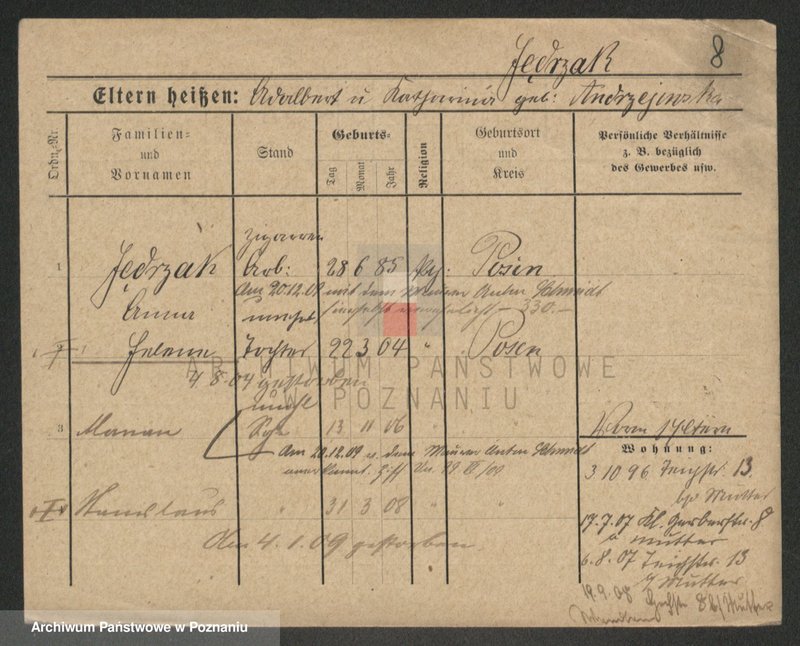 8
Jędrzak
Eltern heißen: Adalbert u Katharina geb: Andrzejewska
Ordn.-Nr.
Familien-
und
Vornamen
Stand
Geburts-
Tag
Monat
Jahr
Religion
Geburtsort
und
Kreis
Persönliche Verhältnisse
z. B. bezüglich
des Gewerbes usw.
Zigarren
1 Jędrzak Arb: 28 6 85 Posen
Am 20.12.09 mit dem Maurer Anton Schmidt
Anna unehel. 330.-
Helene Tochter 22 3 04 " Posen
4.8.04 gestorben
unehl
3 Maryan Sohn 13 11 06 "
Am 20.12.09 v. dem Maurer Anton Schmidt
anerkannt.
Wohnung:
3 10 96 Teichstr. 13
b/ Mutter
Stanislaus " 31 3 08 " "
17.7.07 Kl. Gerberstr. 8
Mutter
Am 4.1.09 gestorben
6.8.07 Teichstr. 13
Mutter
19.9.08 b/ Mutter
ARCHIWUM PAŃSTWOWE
W POZNANIU
Archiwum Państwowe w Poznaniu